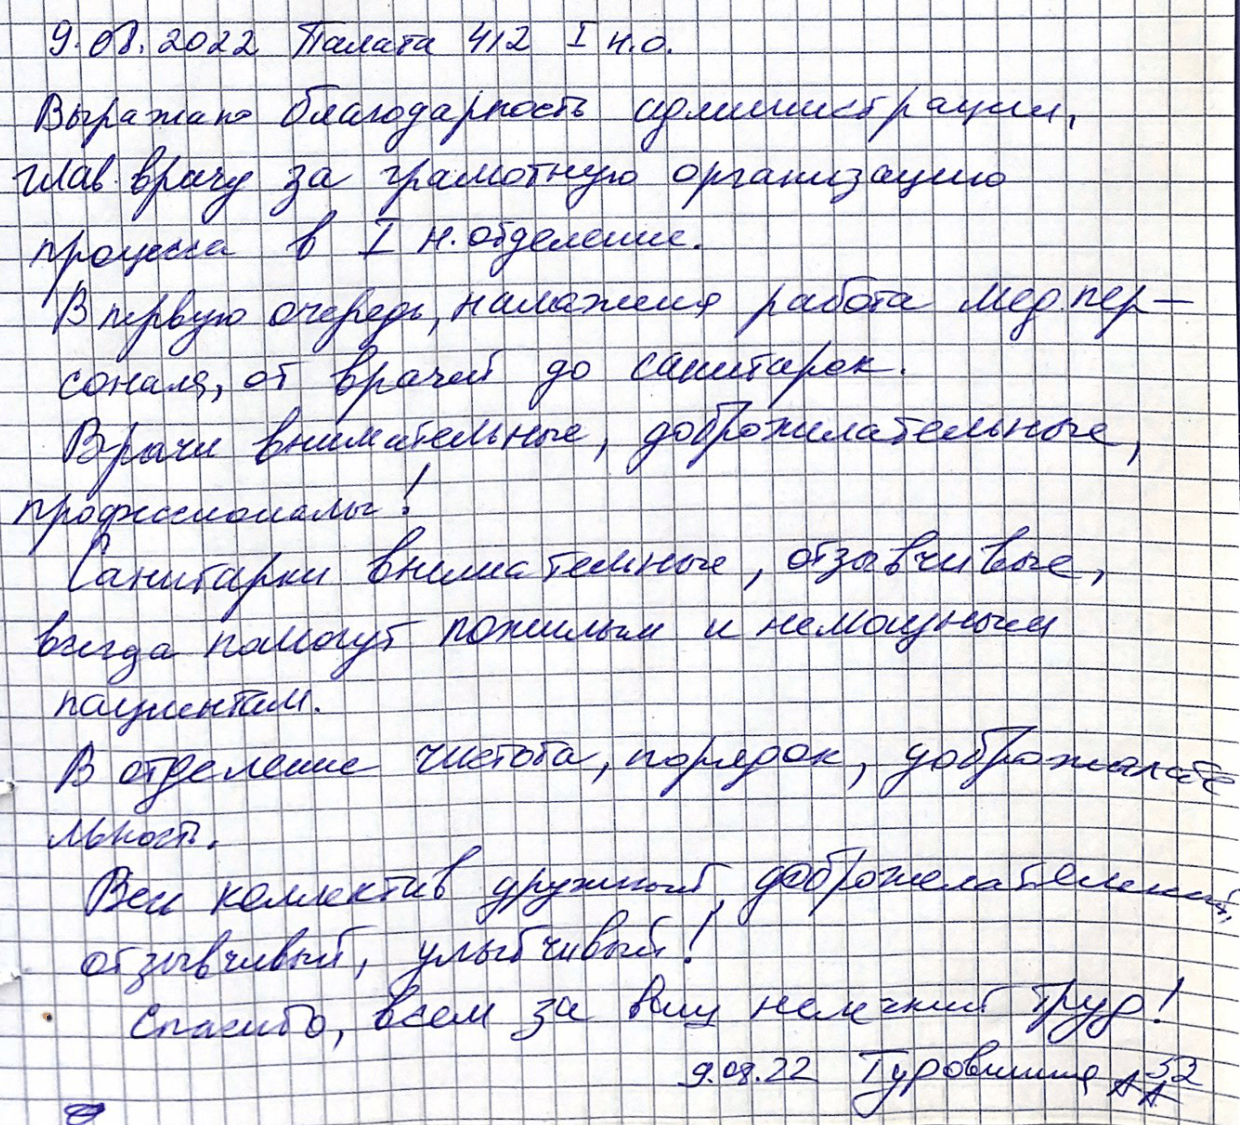 9.08.2022 Палата 412 I н.о.
Выражаю благодарность администрации,
глав. врачу за грамотную организацию
процесса в I н. отделение.
В первую очередь, налажена работа мед. пер-
сонала, от врачей до санитарок.
Врачи внимательные, доброжилательные,
профессионалы!
Санитарки внимательные, отзывчивые,
всегда помогут пожилым и немощным
пациентам.
В отделение чистота, порядок, доброжелате
льность.
Весь коллектив дружный, доброжелательный,
отзывчивый, улыбчивый!
Спасибо, всем за ваш нелегкий труд!
9.08.22